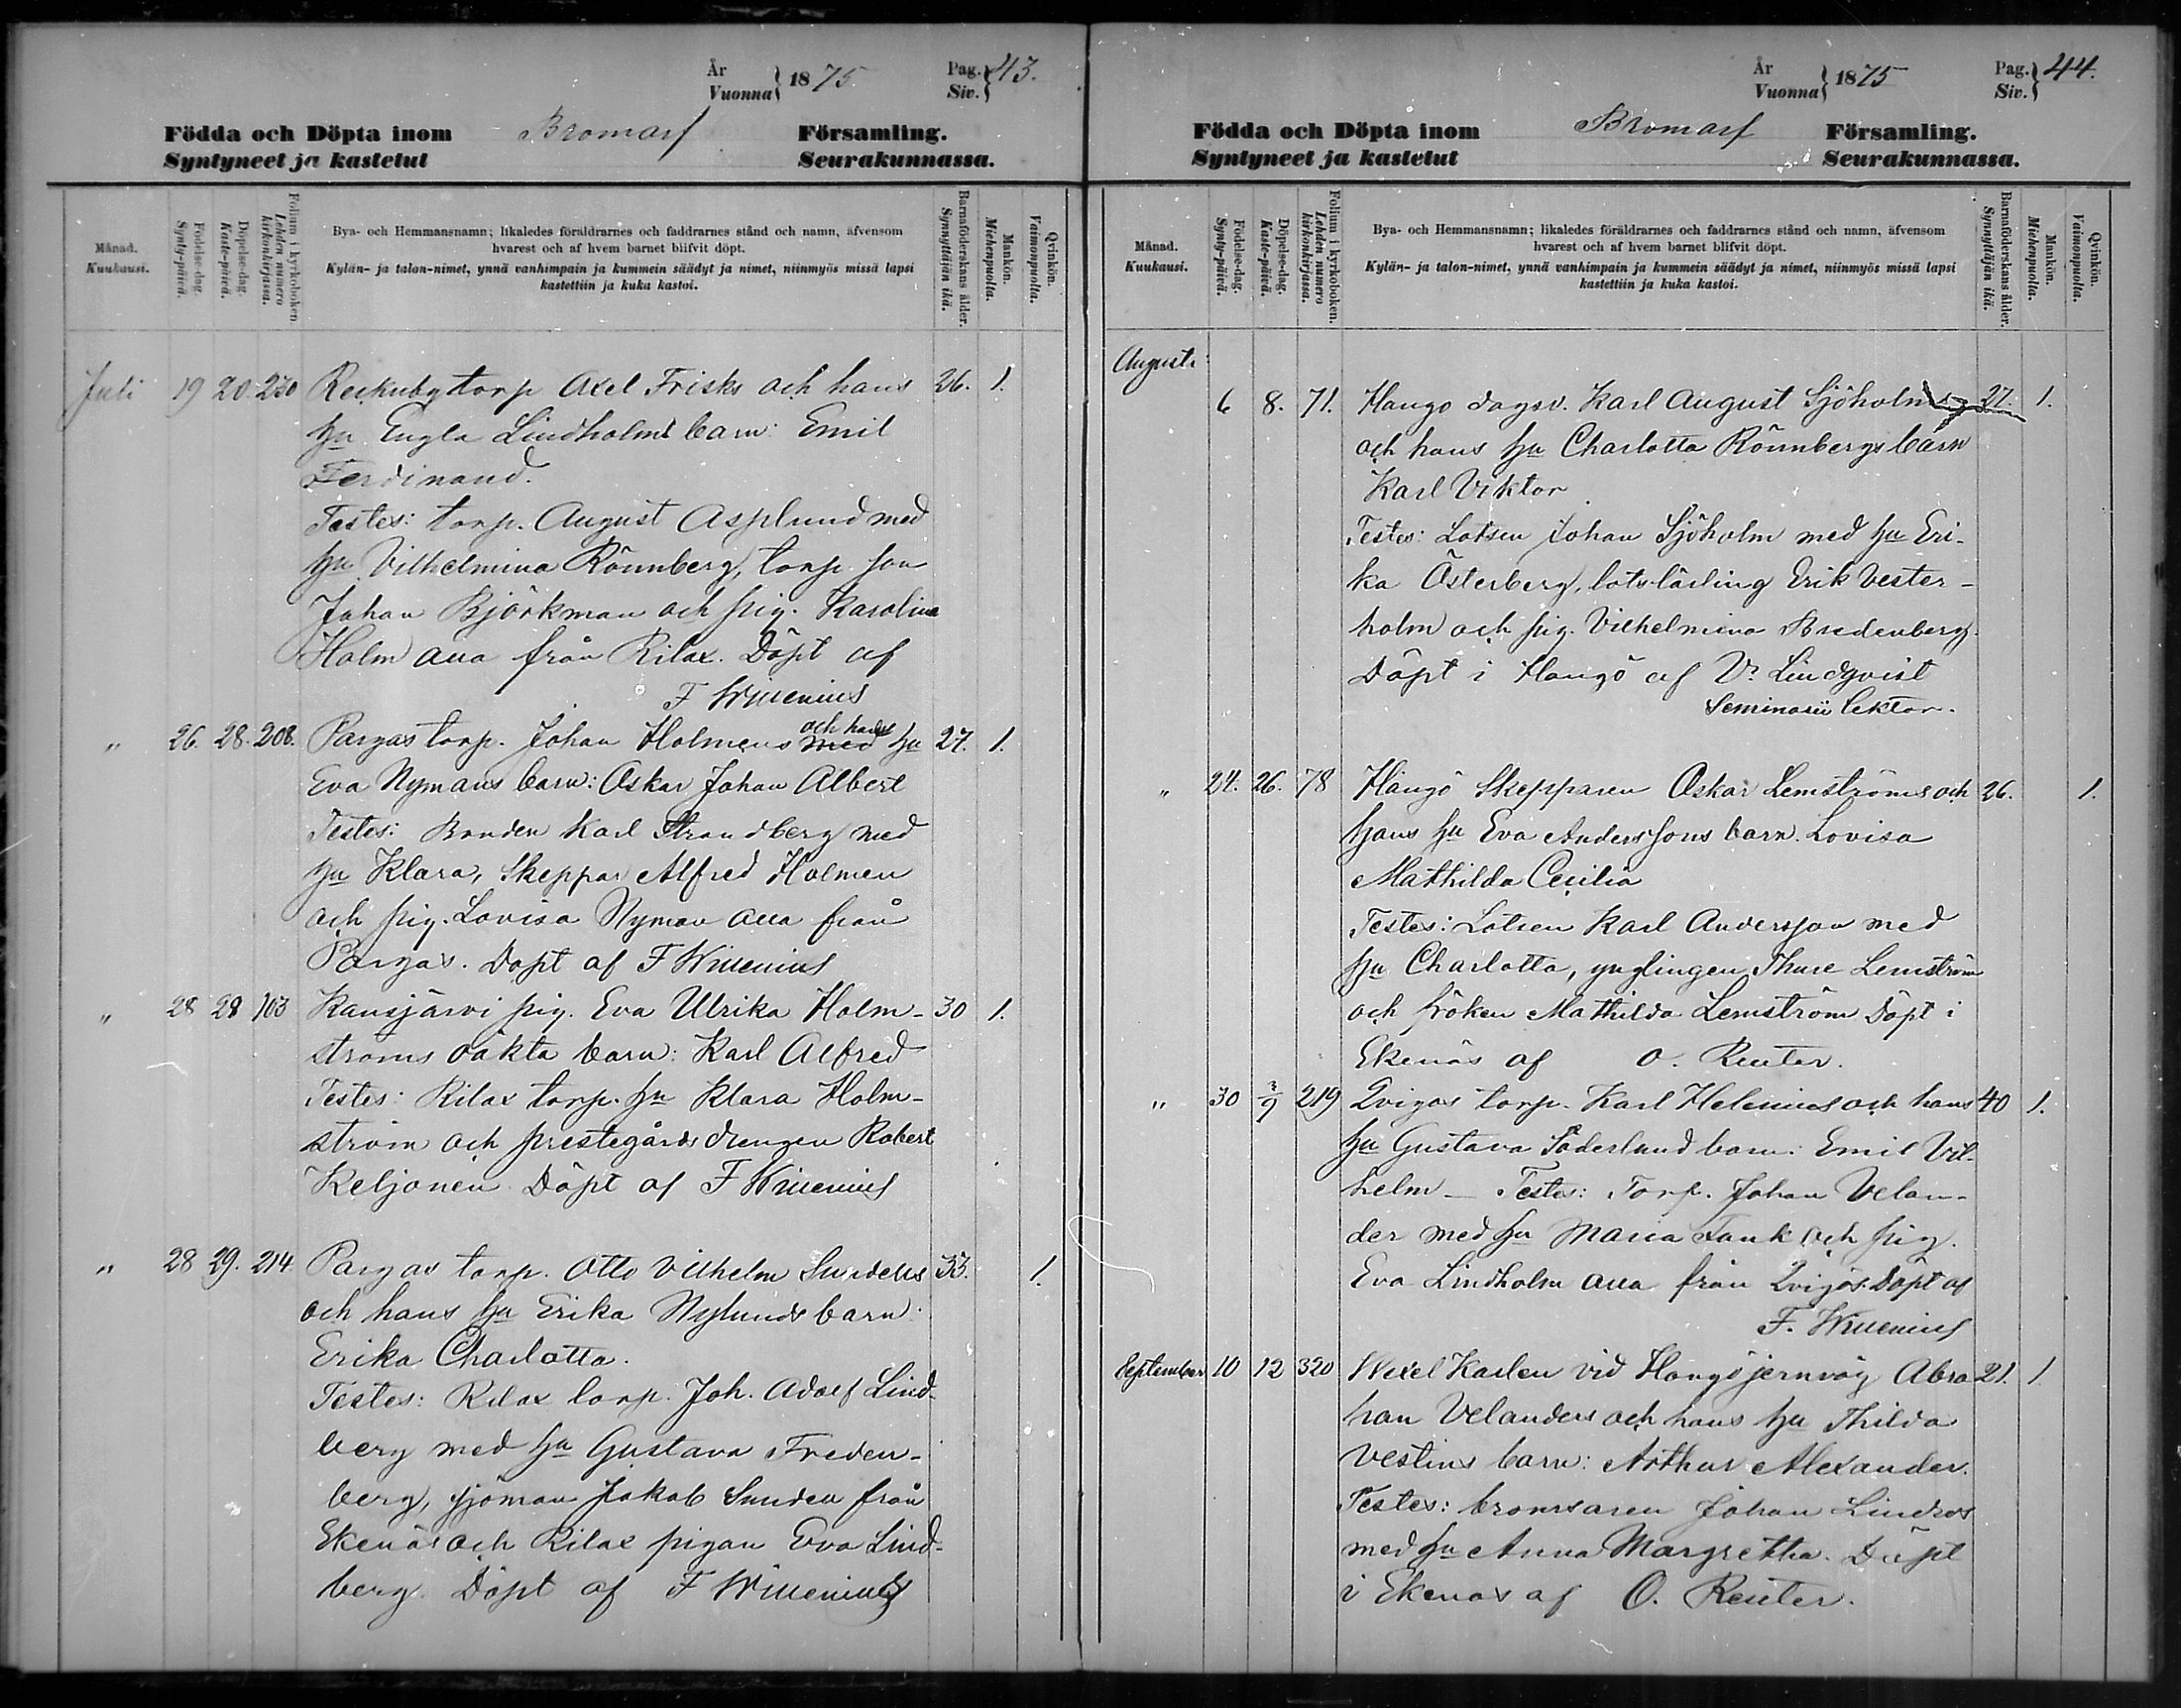 År
Vuonna } 1875.
Pag.
Siv. } 43.
Födda och Döpta inom Bromarf Församling.
Syntyneet ja kastetut Seurakunnassa.
Månad.
Kuukausi.
Födelse-dag.
Synty-päivä.
Döpelse-dag.
Kaste-päivä.
Folium i kyrkoboken.
Lehden numero kirkonkirjassa.
Bya- och Hemmansnamn; likaledes föräldrarnes och faddrarnes stånd och namn, äfvensom
hvarest och af hvem barnet blifvit döpt.
Kylän- ja talon-nimet, ynnä vanhimpain ja kummein säädyt ja nimet, niinmyös missä lapsi
kastettiin ja kuka kastoi.
Barnaföderskans ålder.
Synnyttäjän ikä.
Mankön.
Miehenpuolta.
Qvinkön.
Vaimonpuolta.
Juli 19 20. 230 torp Axel Frisks och hans 26. 1.
hu Engla Lindholms barn: Emil
Ferdinand.
Testes: torp. August Asplund med
hu Vilhelmina Rönnberg, torp. son
Johan Björkman och pig. Karolina
Holm alla från Rilax. Döpt af
F Winenius
" 26. 28. 208. Pargas torp. Johan Holmens och hans hu 27. 1.
Eva Nymans barn: Oskar Johan Albert
Testes: Bonden Karl Strandberg med
hu Klara, Skeppar Alfred Holmen
och pig. Lovisa Nyman alla från
Pargas. Döpt af F Winenius
" 28 28 103 Kansjärvi pig. Eva Ulrika Holm- 30 1.
ströms oäkta barn: Karl Alfred
Testes: Rilax torp. hu Klara Holm-
ström och prestegårds drengen Robert
Keljonen Döpt af F Winenius
" 28 29. 214. Pargas torp. Otto Vilhelm Sundells 33. 1.
och hans hu Erika Nylunds barn:
Erika Charlotta.
Testes: Rilax torp. Joh. Adolf Lind-
berg med hu Gustava Freden-
berg, sjöman Jakob Sunden från
Ekenäs och Rilax pigan Eva Lind-
berg. Döpt af F Winenius
År
Vuonna } 1875
Pag.
Siv. } 44.
Födda och Döpta inom Bromarf Församling.
Syntyneet ja kastetut Seurakunnassa.
Månad.
Kuukausi.
Födelse-dag.
Synty-päivä.
Döpelse-dag.
Kaste-päivä.
Folium i kyrkoboken.
Lehden numero kirkonkirjassa.
Bya- och Hemmansnamn; likaledes föräldrarnes och faddrarnes stånd och namn, äfvensom
hvarest och af hvem barnet blifvit döpt.
Kylän- ja talon-nimet, ynnä vanhimpain ja kummein säädyt ja nimet, niinmyös missä lapsi
kastettiin ja kuka kastoi.
Barnaföderskans ålder.
Synnyttäjän ikä.
Mankön.
Miehenpuolta.
Qvinkön.
Vaimonpuolta.
Augusti
6 8. 71. Hangö dagsv. Karl August Sjöholms 27. 1.
och hans hu Charlotta Rönnbergs barn
Karl Viktor
Testes: Lotsen Johan Sjöholm med hu Eri-
ka Österberg, lotslärling Erik Vester-
holm och pig. Vilhelmina Bredenberg.
Döpt i Hangö af V. Lindqvist
Seminarii lektor.
" 24. 26. 78 Hangö Skepparen Oskar Lemströms och 26. 1.
hans hu Eva Anderssons barn. Lovisa
Mathilda Cecilia
Testes: Lotsen Karl Andersson med
hu Charlotta, ynglingen Thure Lemström
och fröken Mathilda Lemström Döpt i
Ekenäs af O. Reuter.
" 30 3/9 219 Qvigos torp. Karl Helenius och hans 40 1.
hu Gustava Söderlund barn: Emil Vil-
helm – Testes: Torp. Johan Velan-
der med hu Maria Tank och pig.
Eva Lindholm alla från Qvigos. Döpt af
F. Winenius
September 10 12 320 Wexel Karlen vid Hangö jernväg Abra- 21. 1
ham Velanders och hans hu Thilda
Vestins barn: Arthur Alexander.
Testes: bromsaren Johan Lindros
med hu Anna Margretha. Döpt
i Ekenäs af O. Reuter.